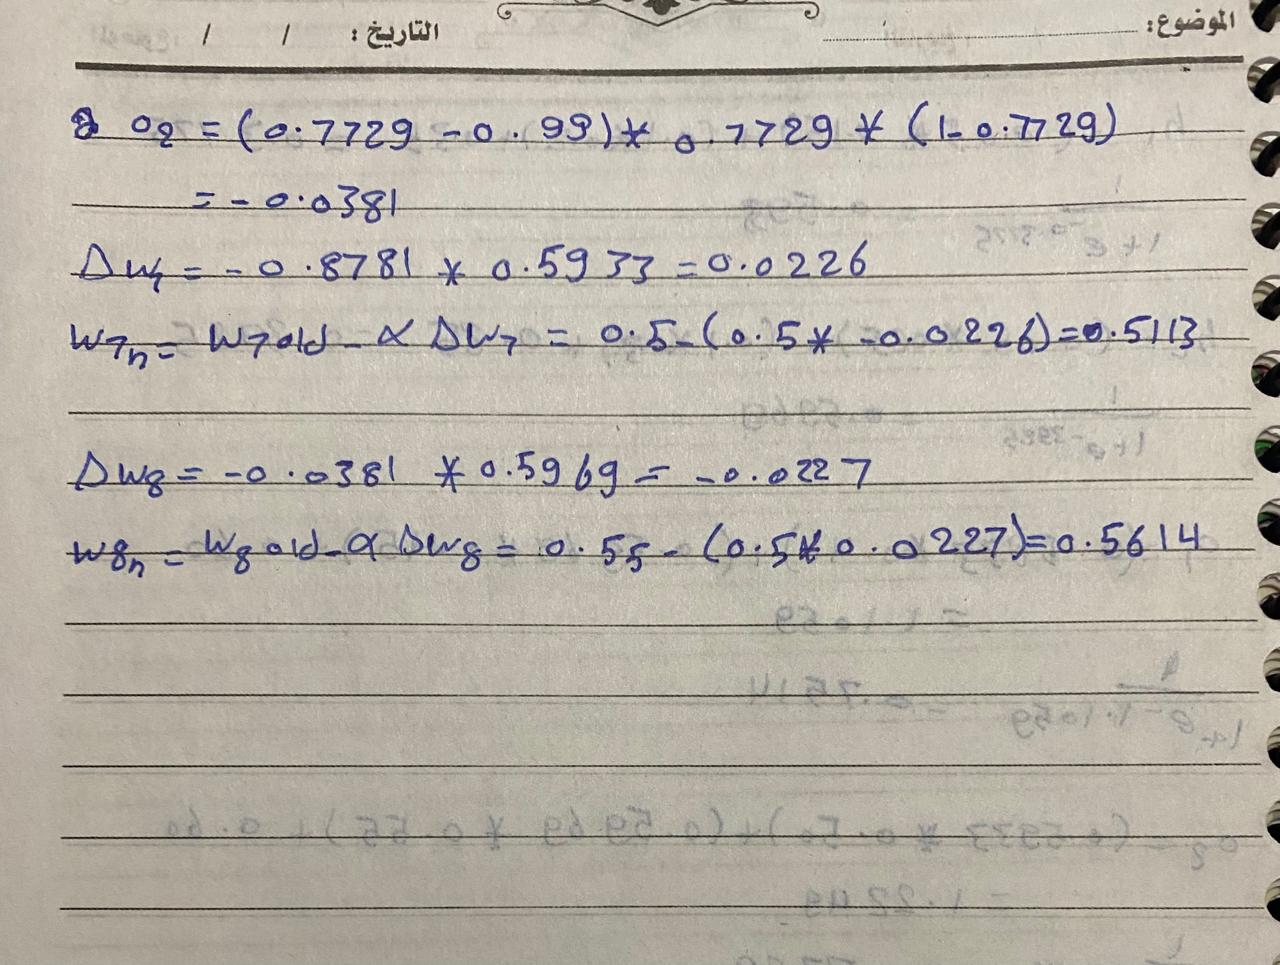 الموضوع: التاريخ : / /
∂ o2 = (0.7729 - 0.99) * 0.7729 * (1-0.7729)
= - 0.0381
Δw7 = - 0.8781 * 0.5933 = 0.0226
w7n = w7old - α Δw7 = 0.5 - (0.5 * -0.0226) = 0.5113
Δw8 = -0.0381 * 0.5969 = -0.0227
w8n = w8old - α Δw8 = 0.55 - (0.5 * 0.0227) = 0.5614